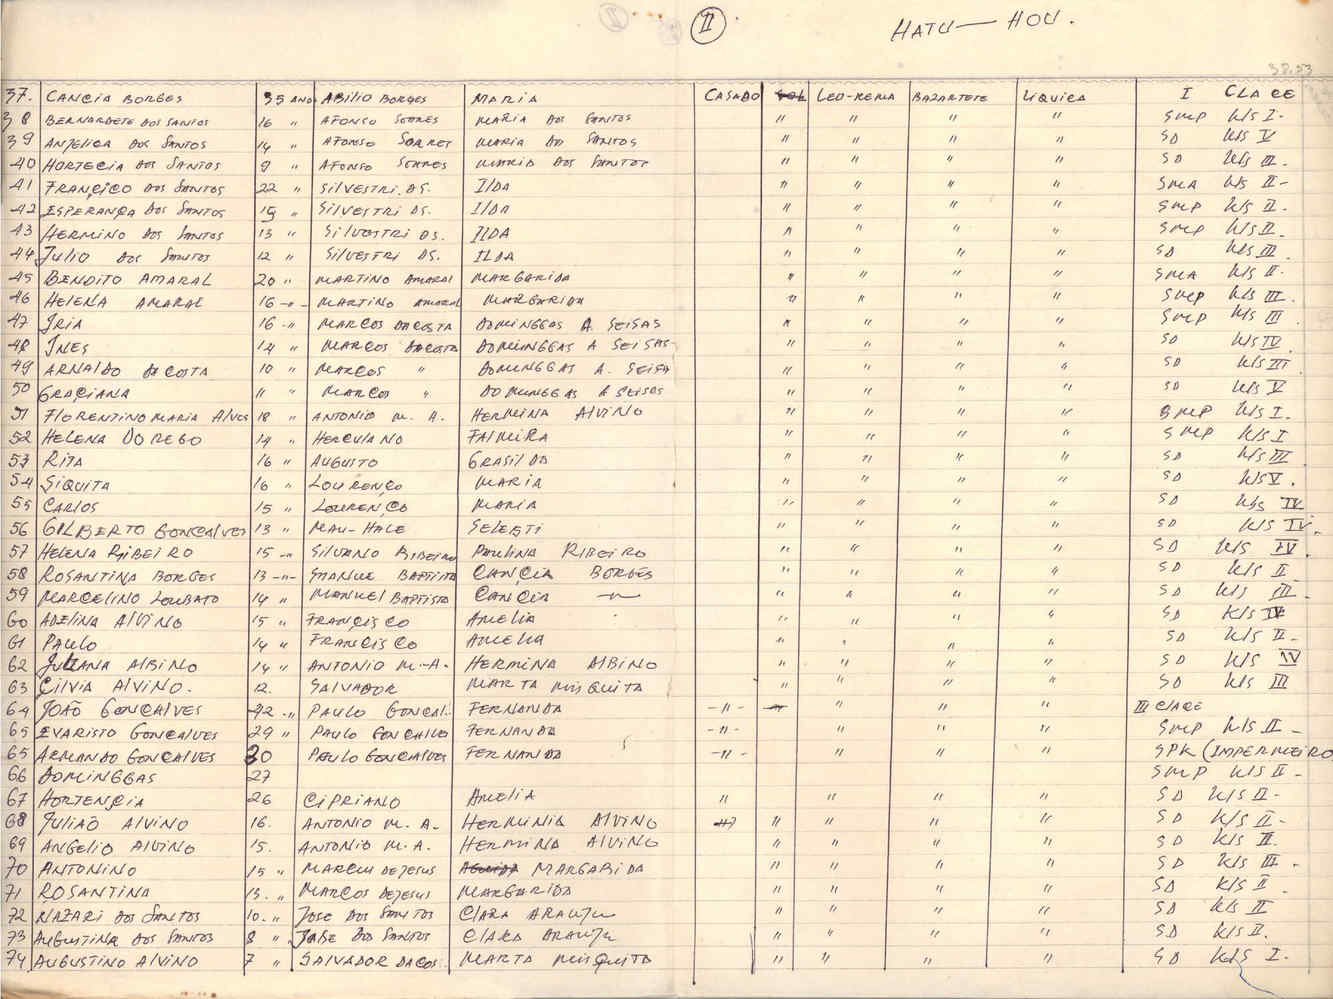 II
HATU — HOU.
37. CANCIA BORGES 35 ANOS ABILIO BORGES MARIA CASADO LEO-REMA BAZARTETE LIQUICA I CLACE
38 BERNARDETE DOS SANTOS 16 " AFONSO SOARES MARIA DOS SANTOS " " " " SMP KLS I-
39 ANJELICA DOS SANTOS 14 " AFONSO SOARES MARIA DO SANTOS " " " " SD KLS IV
40 HORTECIA DOS SANTOS 9 " AFONSO SOARES MARIA DOS SANTOS " " " " SD KLS III.
41 FRANÇICO DOS SANTOS 22 " SILVESTRI. DS. ILDA " " " " SMA KLS II-
42 ESPERANÇA DOS SANTOS 15 " SILVESTRI DS. ILDA " " " " SMP KLS II-
43 HERMINO DOS SANTOS 13 " SILVESTRI DS. ILDA " " " " SMP KLS II.
44 JULIO DOS SANTOS 12 " SILVESTRI DS. ILDA " " " " SD KLS III.
45 BENDITO AMARAL 20 " MARTINO AMARAL MARGARIDA " " " " SMA KLS II-
46 HELENA AMARAL 16 -"- MARTINO AMARAL MARGARIDA " " " " SMP KLS III.
47 IRIA 16 -" MARCOS DACOSTA DOMINGGAS A SEISAS " " " " SMP KLS III.
48 INES 14 " MARCOS DACOSTA DOMINGGAS A SEISAS " " " " SD KLS IV.
49 ARNALDO DACOSTA 10 " MARCOS " DOMINGGAS A. SEISA " " " " SD KLS III
50 GRAÇIANA 11 " MARCOS " DOMINGGAS A SEISAS " " " " SD KLS V
51 FLORENTINO MARIA ALVES 18 " ANTONIO M. A. HERMINA ALVINO " " " " SMP KLS I.
52 HELENA DO REGO 14 " HERCULANO FALMIRA " " " " SMP KLS I
53 RITA 16 " AUGUSTO GRASILDA " " " " SD KLS III
54 SIQUITA 16 " LOURENÇO MARIA " " " " SD KLS V.
55 CARLOS 15 " LOURENÇO MARIA " " " " SD KLS IV
56 GILBERTO GONCALVES 13 " MAU-HALE SELESTI " " " " SD KLS IV.
57 HELENA RIBEIRO 15 -" SILVANO RIBEIRO PAULINA RIBEIRO " " " " SD KLS IV.
58 ROSANTINA BORGES 13 -"- MANUEL BAPTISTA CANÇIA BORGES " " " " SD KLS II
59 MARCELINO LOUBATO 14 " MANUEL BAPTISTA CANCIA —"— " " " " SD KLS III-
60 ADELINA ALVINO 15 " FRANCISCO AMELIA " " " " SD KLS IV
61 PAULO 14 " FRANCISCO AMELIA " " " " SD KLS II-
62 JULIANA ALBINO 14 " ANTONIO M-A- HERMINA ALBINO " " " " SD KLS IV
63 CILVIA ALVINO. 12. SALVADOR MARTA MISQUITA " " " " SD KLS III
64 JOÃO GONÇALVES 42 -" PAULO GONCAL. FERNANDA -"- " " " III CLARE
65 EVARISTO GONCALVES 29 " PAULO GONCALVES FERNANDA -"- " " " SMP KLS II-
65 ARMANDO GONCALVES 30 PAULO GONCALVES FERNANDA -"- " " " SPK (IMPERMEIRO
66 DOMINGGAS 27 SMP KLS II-
67 HORTENÇIA 26 CIPRIANO AMELIA " " " " SD KLS II-
68 JULIÃO ALVINO 16. ANTONIO M. A. HERMINIA ALVINO " " " " SD KLS II-
69 ANGELIO ALVINO 15. ANTONIO M. A. HERMINA ALVINO " " " " SD KLS II.
70 ANTONINO 15 " MARCUS DEJESUS MARGARIDA " " " " SD KLS III-
71 ROSANTINA 13. " MARCOS DEJESUS MARGARIDA " " " " SD KLS II
72 NAZARI DOS SANTOS 10. " JOSE DOS SANTOS CLARA ARAUJU " " " " SD KLS II
73 AUGUSTINA DOS SANTOS 8 " JOSE DOS SANTOS CLARA ARAUJU " " " " SD KLS II.
74 AUGUSTINO ALVINO 7 " SALVADOR DACOS. MARTA MISQUITA " " " " SD KLS I.